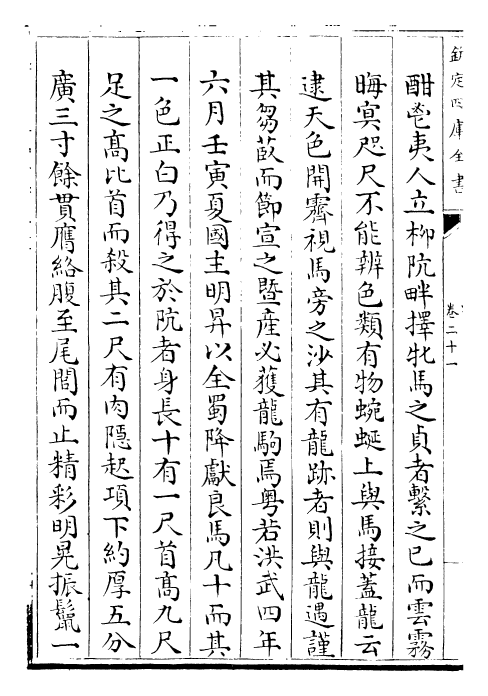 欽定四庫全書
卷二十一
酣鬯夷人立柳阬畔擇牝馬之貞者繫之已而雲霧
晦冥咫尺不能辨色類有物蜿蜒上與馬接蓋龍云
逮天色開霽視馬旁之沙其有龍跡者則與龍遇謹
其芻菽而節宣之暨產必獲龍駒焉粵若洪武四年
六月壬寅夏國主明昇以全蜀降獻良馬凡十而其
一色正白乃得之於阬者身長十有一尺首髙九尺
足之髙比首而殺其二尺有肉隱起項下約厚五分
廣三寸餘貫膺絡腹至尾閭而止精彩明晃振鬛一